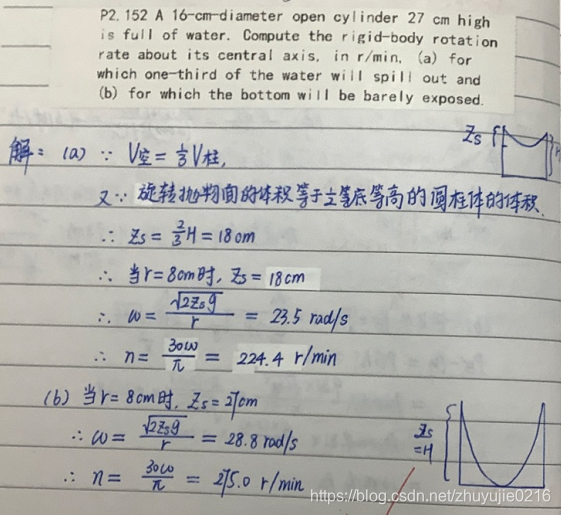 P2.152 A 16-cm-diameter open cylinder 27 cm high
is full of water. Compute the rigid-body rotation
rate about its central axis, in r/min, (a) for
which one-third of the water will spill out and
(b) for which the bottom will be barely exposed.
解: (a) ∵ V空 = 1/3 V柱,
Zs
H
又∵ 旋转抛物面的体积等于立等底等高的圆柱体的体积.
∴ Zs = 2/3 H = 18cm
∴ 当r = 8cm时, Zs = 18cm
∴ ω = √2Zsg / r = 23.5 rad/s
∴ n = 30ω/π = 224.4 r/min
(b) 当r = 8cm时, Zs = 27cm
∴ ω = √2Zsg / r = 28.8 rad/s
Zs
=H
∴ n = 30ω/π = 275.0 r/min
https://blog.csdn.net/zhuyujie0216